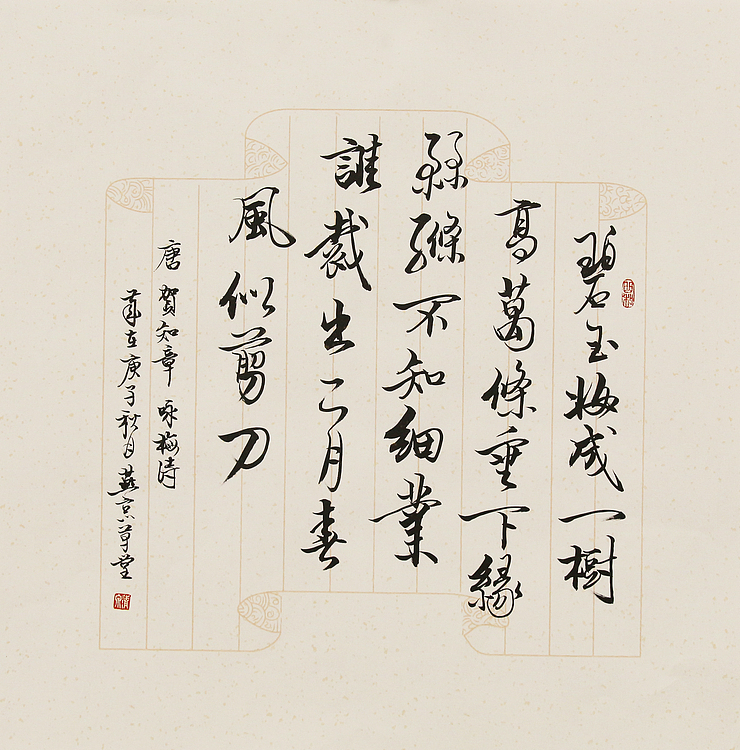 碧玉妝成一樹
高萬條垂下緣
絲縧不知細業
誰裁出二月春
風似剪刀
唐 賀知章 咏梅詩
歲在庚子秋月燕京草堂